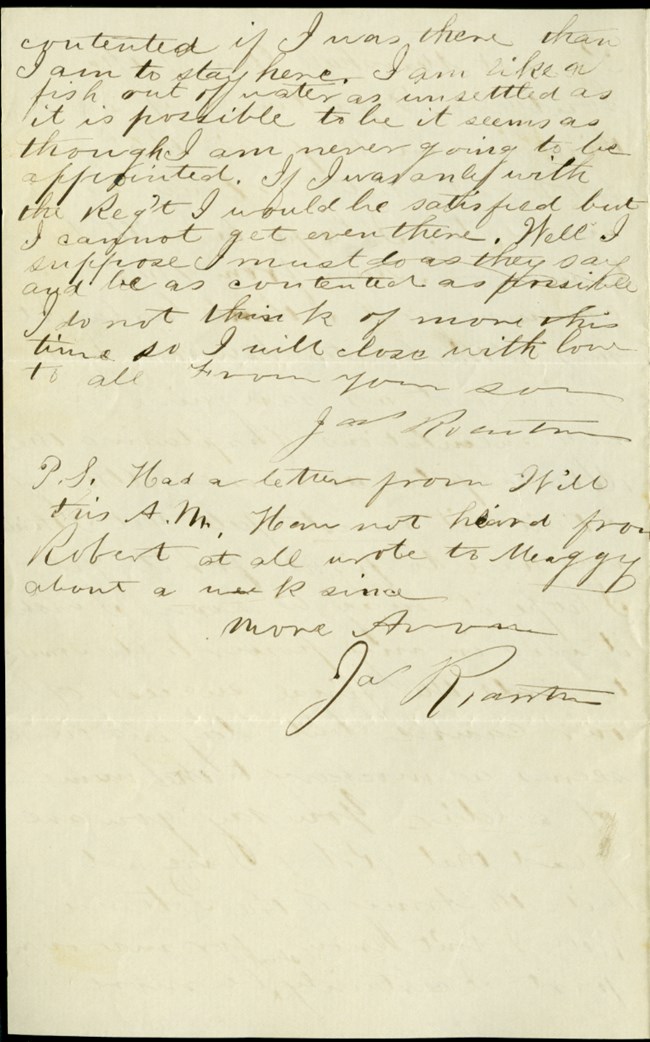 contented if I was there than
I am to stay here. I am like a
fish out of water as unsettled as
it is possible to be it seems as
though I am never going to be
appointed. If I was only with
the Reg't I would be satisfied but
I cannot get even there. Well I
suppose I must do as they say
and be as contented as possible
I do not think of more this
time so I will close with love
to all From your son
Jas
P.S. Had a letter from Will
this A.M. Have not heard from
Robert at all wrote to Meaggy
about a week since
More Anon
Jas